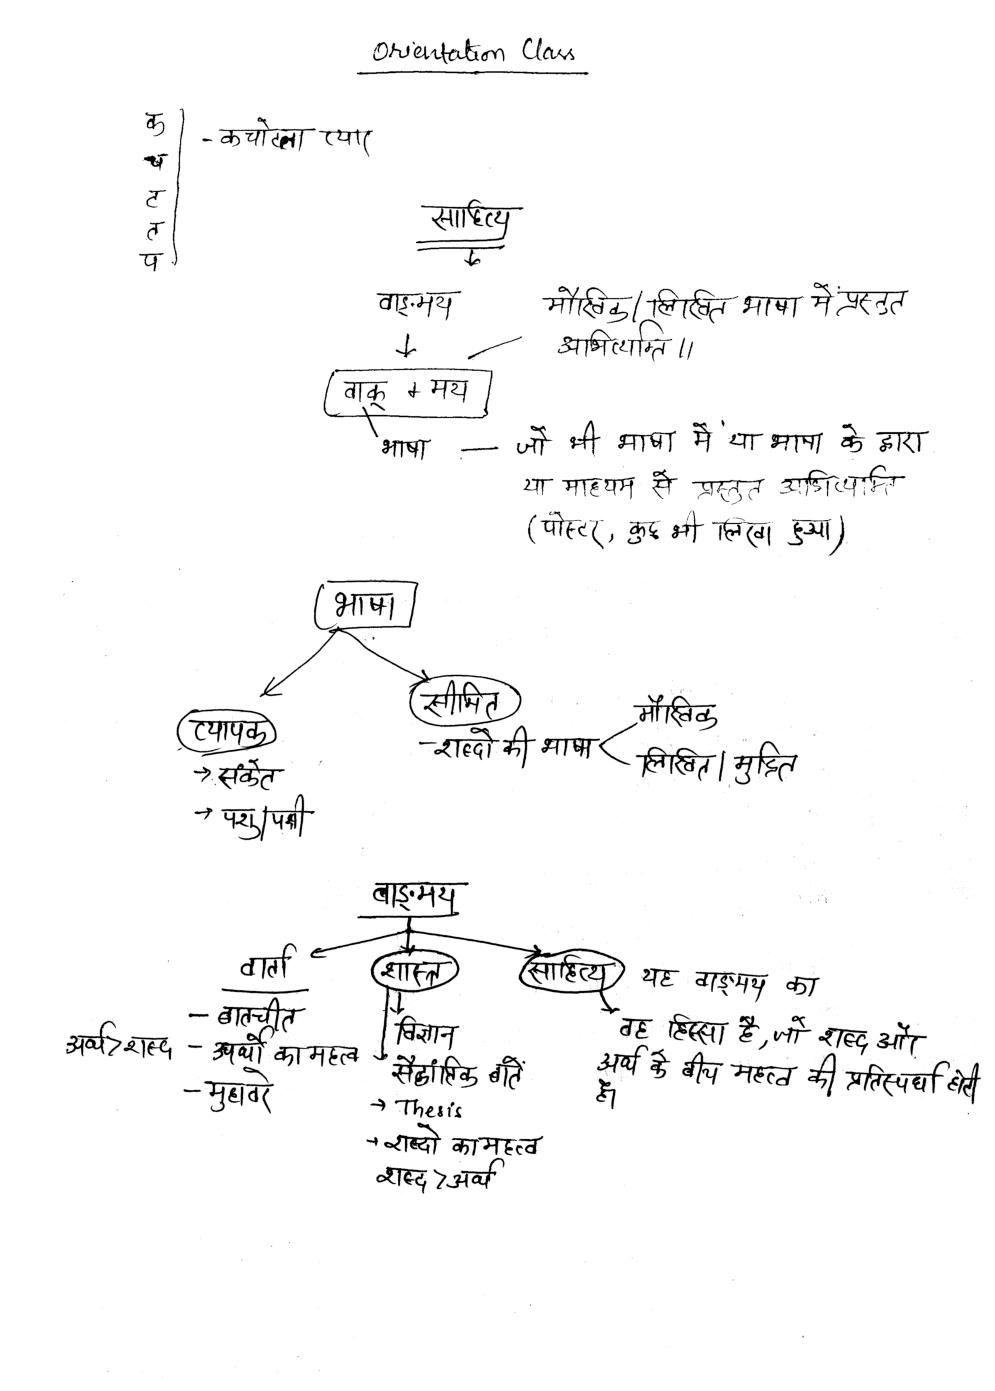 Orientation Class
क
च
ट
त
प
- कचोटता प्यार
साहित्य
वाङ्मय
मौखिक/लिखित भाषा में प्रस्तुत
अभिव्यक्ति॥
वाक् + मय
भाषा — जो भी भाषा में या भाषा के द्वारा
या माध्यम से प्रस्तुत अभिव्यक्ति
(पोस्टर, कुछ भी लिखा हुआ)
भाषा
व्यापक
→ संकेत
→ पशु/पक्षी
सीमित
- शब्दों की भाषा
मौखिक
लिखित/मुद्रित
वाङ्मय
वार्ता
- बातचीत
अर्थ>शब्द - अर्थों का महत्व
- मुहावरे
शास्त्र
विज्ञान
सैद्धांतिक बातें
→ Thesis
→ शब्दों का महत्व
शब्द>अर्थ
साहित्य यह वाङ्मय का
वह हिस्सा है, जो शब्द और
अर्थ के बीच महत्व की प्रतिस्पर्धा होती
है।